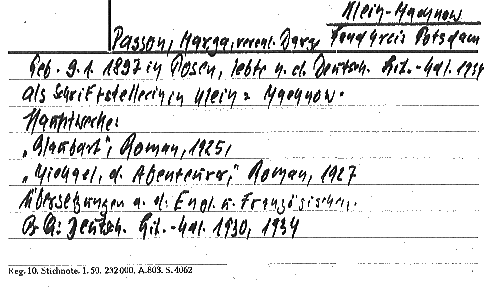 Klein-Machnow
Passon, Marga, verehl. Landkreis Potsdam
Geb. 9.1.1897 in Posen, lebte n. d. Deutsch. Lit.-Kal. 1934
als Schriftstellerin in Klein-Machnow.
Hauptwerke:
„Blaubart", Roman, 1925,
d. Abenteurer," Roman, 1927
Übersetzungen a. d. Engl. u. Französischen.
Deutsch. Lit.-Kal. 1930, 1934
Reg. 10. Stichnote. 1. 50. 232000. A.803. S. 4062